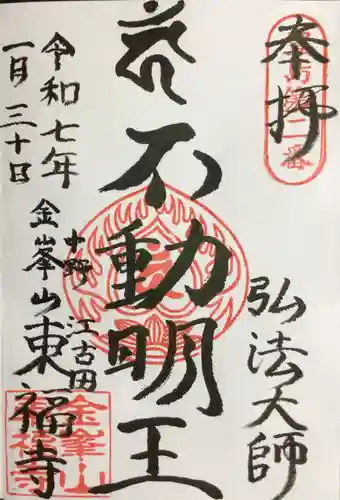 奉拝
弘法大師
不動明王
中野 江古田
金峯山東福寺
令和七年
一月三十日
金峯山